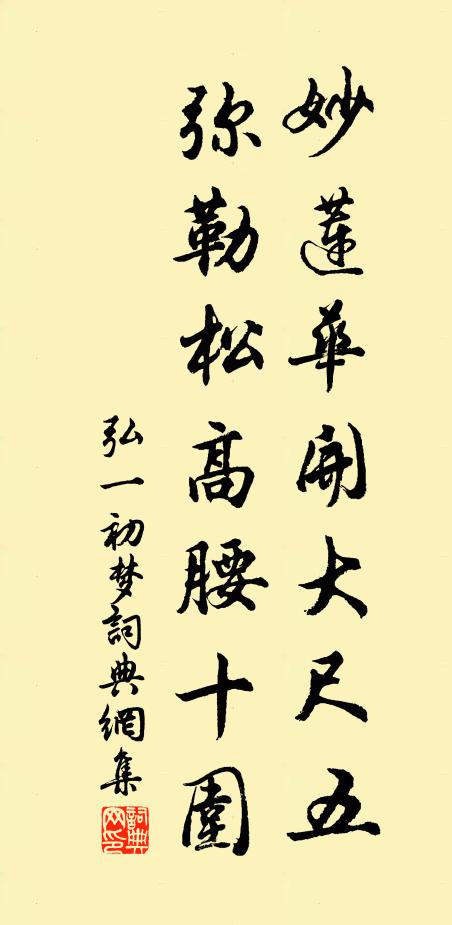 妙蓮華開大尺五
弥勒松高腰十圍
弘一初梦詞典網集
詞典网印